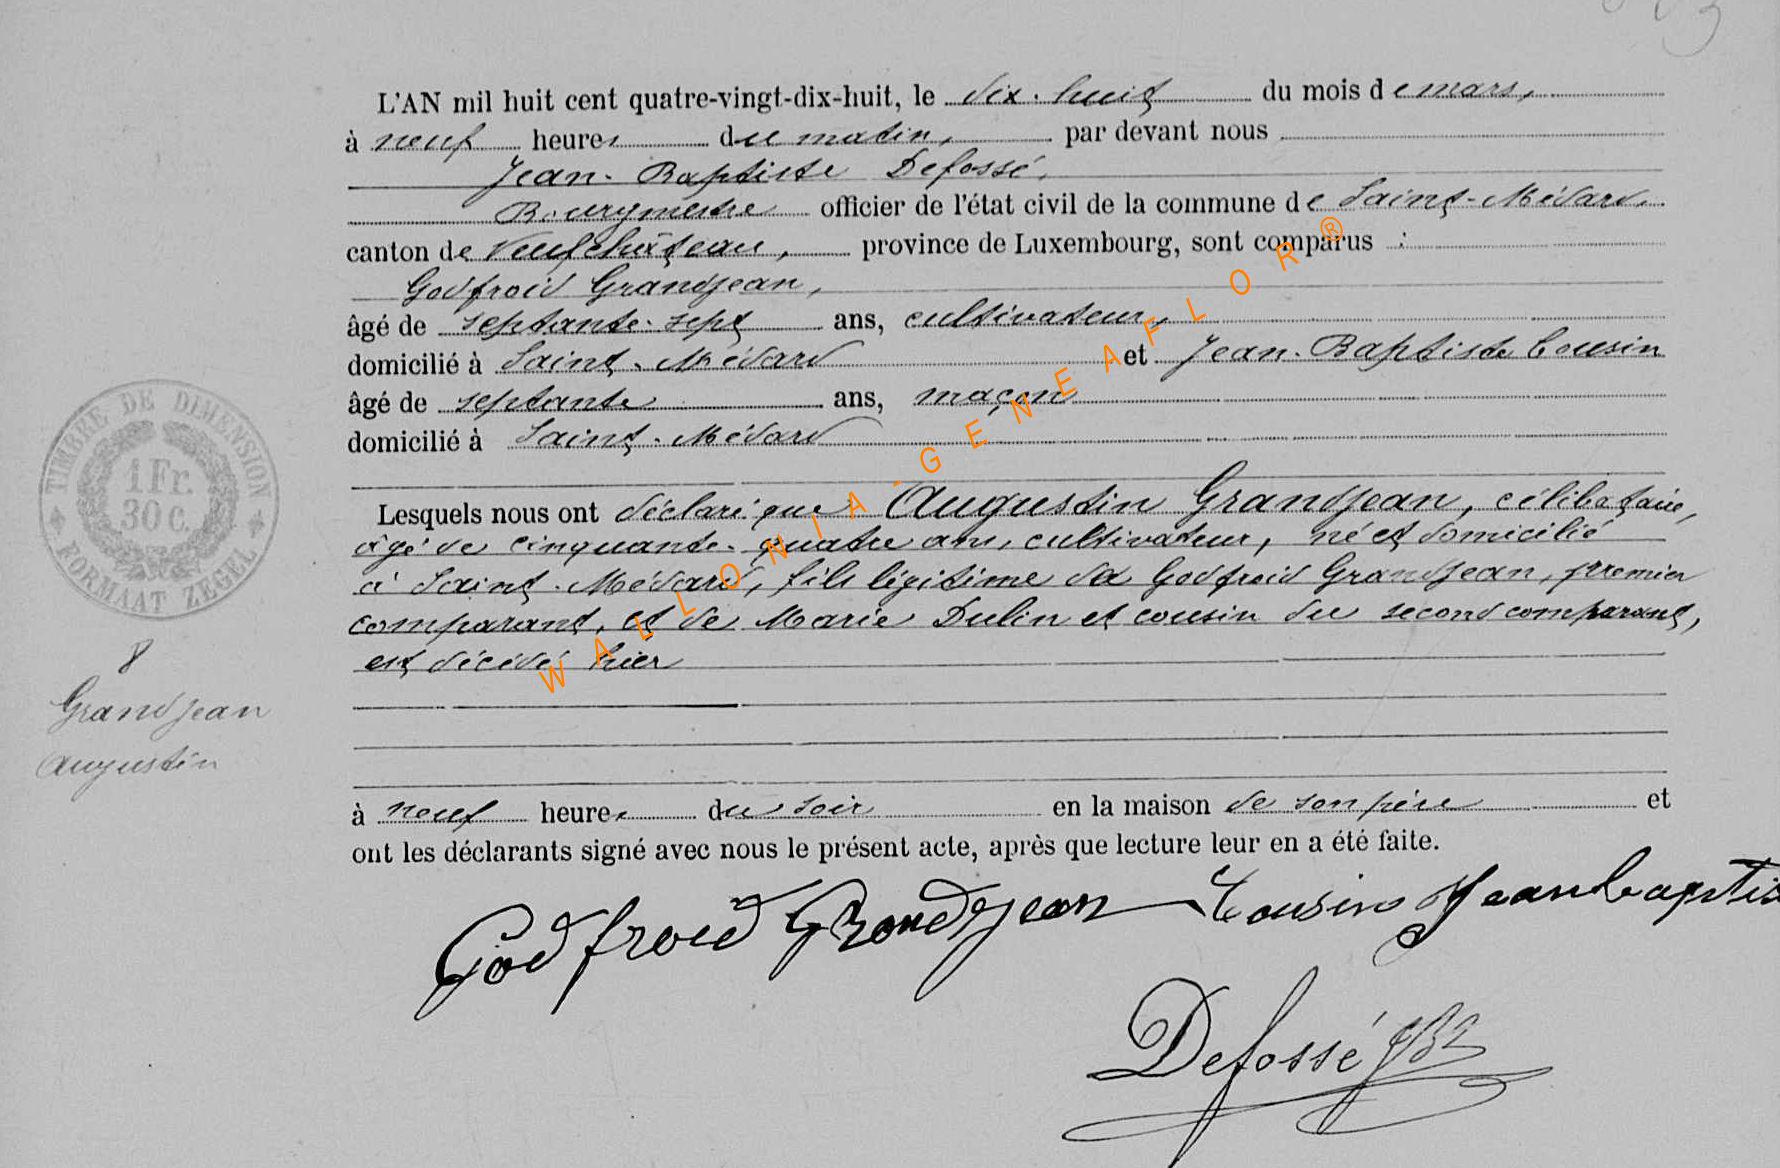 L'AN mil huit cent quatre-vingt-dix-huit, le dix-huit du mois de mars,
à neuf heures du matin, par devant nous
Jean-Baptiste Defossé,
Bourgmestre officier de l'état civil de la commune de Saint-Médard,
canton de Neufchâteau, province de Luxembourg, sont comparus :
Godfroid Grandjean,
âgé de septante-sept ans, cultivateur,
domicilié à Saint-Médard et Jean-Baptiste Cousin
âgé de septante ans, maçon
domicilié à Saint-Médard
Lesquels nous ont déclaré que Augustin Grandjean, célibataire,
âgé de cinquante-quatre ans, cultivateur, né et domicilié
à Saint-Médard, fils légitime de Godfroid Grandjean, premier
comparant, et de Marie Dulin et cousin du second comparant,
est décédé hier
à neuf heures du soir en la maison de son père et
ont les déclarants signé avec nous le présent acte, après que lecture leur en a été faite.
Godfroid Grandjean Cousin Jeanbaptis
Defossé JB
TIMBRE DE DIMENSION
1 Fr.
30 C.
FORMAAT ZEGEL
8
Grandjean
Augustin
WALLONIA-GENEAFLOR®